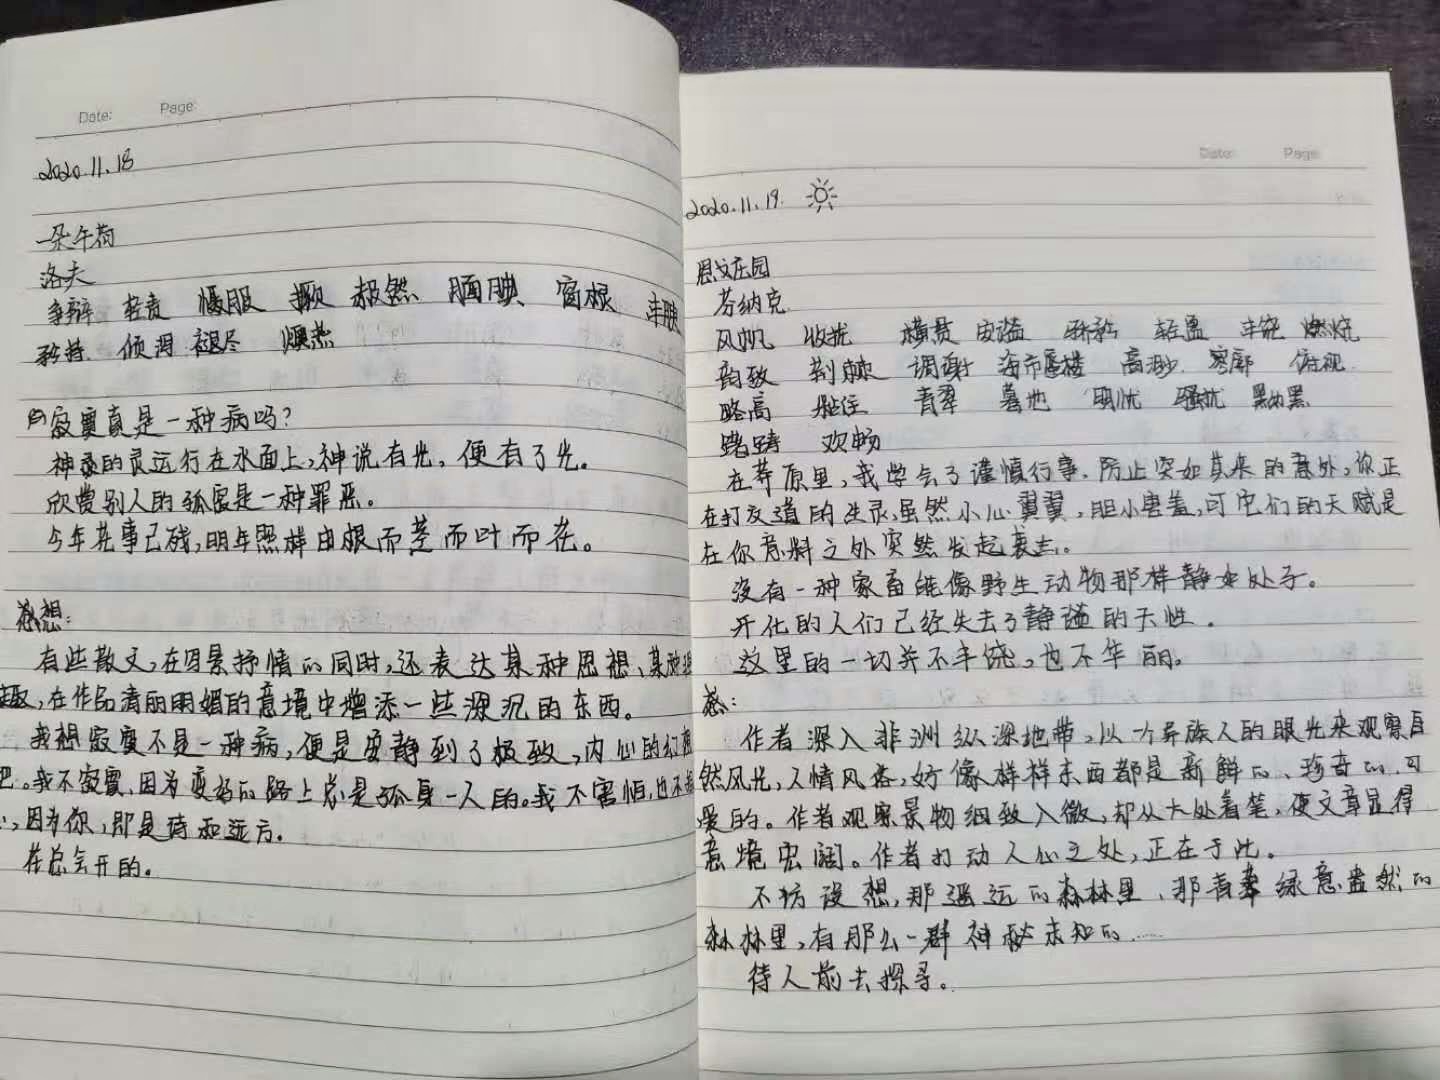 Date: Page:
2020.11.18
一朵午荷
洛夫
争辩 轻责 慑服 撷 赧然 腼腆 窗棂
矜持 倾泻 褪尽 燠热
寂寞真是一种病吗?
神的灵运行在水面上,神说有光,便有了光。
欣赏别人的孤寂是一种罪恶。
今年花事已残,明年照样由根而茎而叶而花。
感想:
有些散文,在写景抒情的同时,还表达某种思想、某种理
趣,在作品清丽明媚的意境中增添一些深沉的东西。
我想寂寞不是一种病,便是安静到了极致,内心的幻想
吧。我不寂寞,因为变好的路上总是孤身一人的。我不害怕,也不
,因为你,即是诗和远方。
花总会开的。
Date: Page:
2020.11.19.
恩戈庄园
芬纳克
风帆 收拢 横贯 轻盈 丰饶 燃烧
韵致 荆棘 凋谢 海市蜃楼 高渺 寥廓 俯视
略高 粘住 青翠 墓地 明忧 骚扰 黑黝黑
踌躇 欢畅
在莽原里,我学会了谨慎行事,防止突如其来的意外,你正
在打交道的生灵虽然小心翼翼,胆小害羞,可它们的天赋是
在你意料之外突然发起袭击。
没有一种家畜能像野生动物那样静如处子。
开化的人们已经失去了静谧的天性。
这里的一切并不丰饶,也不华丽。
感:
作者深入非洲纵深地带,以一个异族人的眼光来观察自
然风光,人情风俗,好像样样东西都是新鲜的、珍奇的、可
爱的。作者观察景物细致入微,却从大处着笔,使文章显得
意境宏阔。作者打动人心之处,正在于此。
不妨设想,那遥远的森林里、那青翠绿意盎然的
森林里,有那么一群神秘未知的……
待人前去探寻。